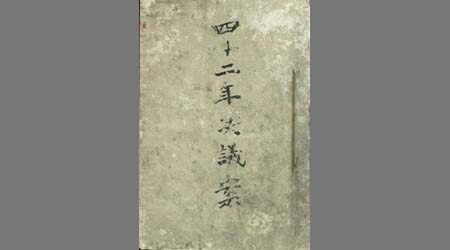 四十二年决議案